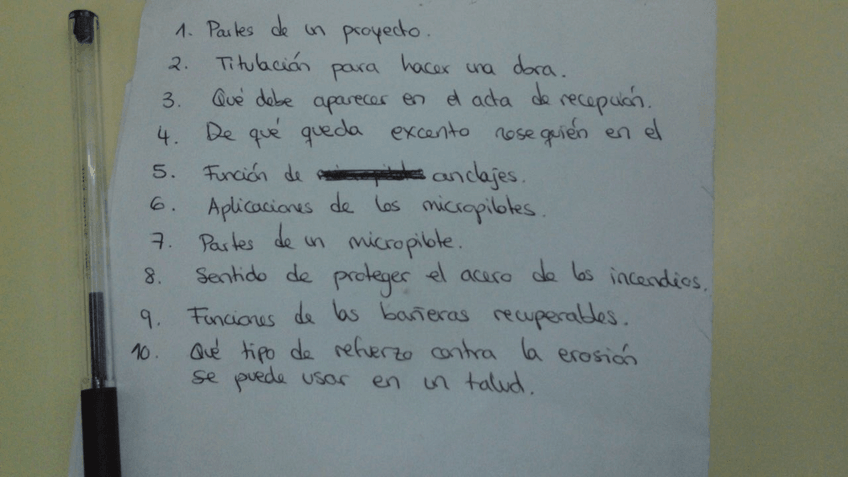 1. Partes de un proyecto.
2. Titulación para hacer una obra.
3. Qué debe aparecer en el acta de recepción.
4. De qué queda excento nose quién en el
5. Función de anclajes.
6. Aplicaciones de los micropilotes.
7. Partes de un micropilote.
8. Sentido de proteger el acero de los incendios.
9. Funciones de las bañeras recuperables.
10. Qué tipo de refuerzo contra la erosión
se puede usar en un talud.